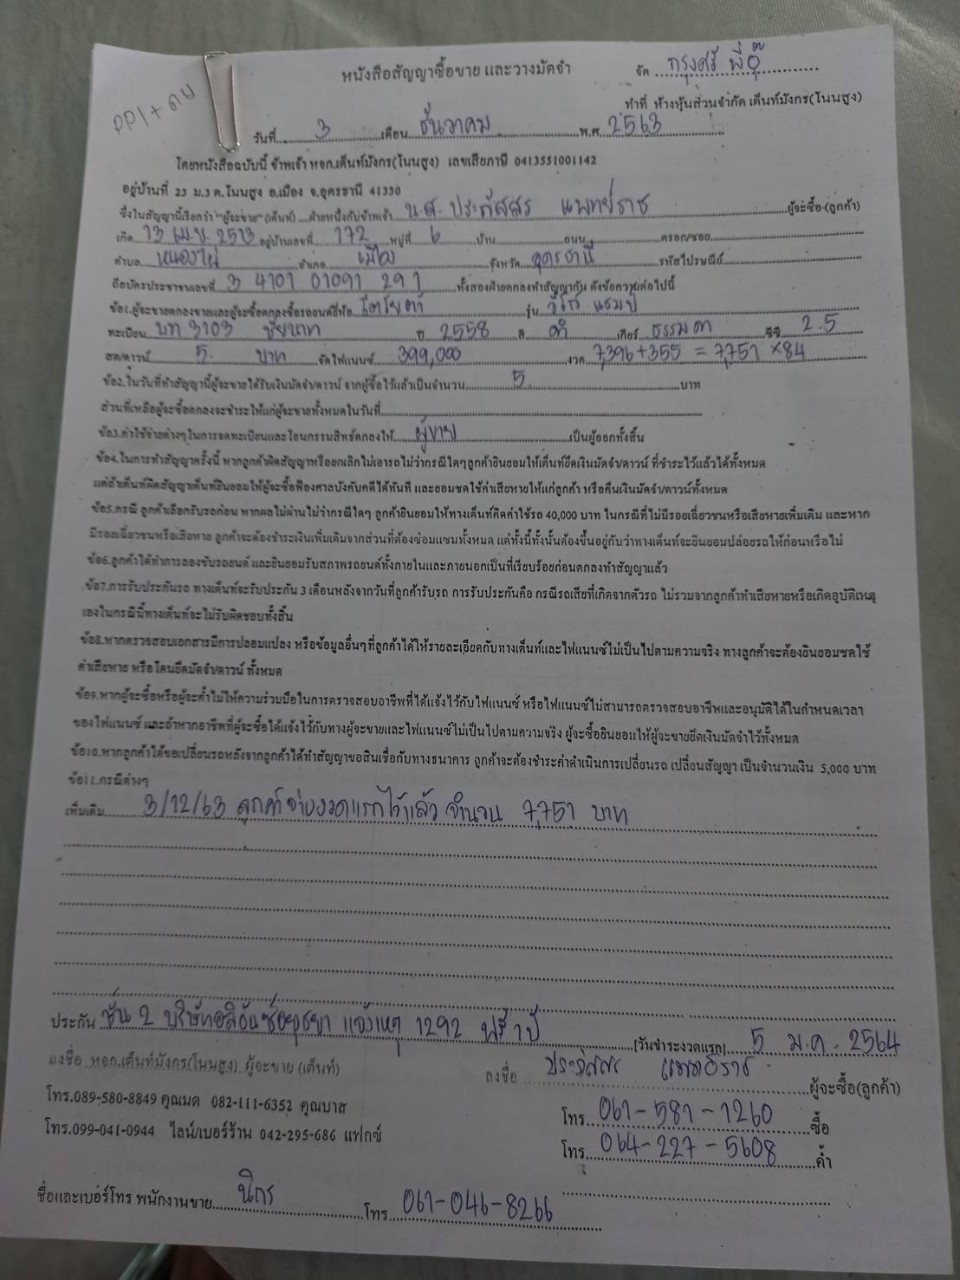 หนังสือสัญญาซื้อขาย และวางมัดจำ
จัด กรุงศรี พี่อุ๊
PP1+
ทำที่ ห้างหุ้นส่วนจำกัด เต็นท์มังกร(โนนสูง)
วันที่ 3 เดือน ธันวาคม พ.ศ. 2563
โดยหนังสือฉบับนี้ ข้าพเจ้า หจก.เต็นท์มังกร(โนนสูง) เลขเสียภาษี 0413551001142
อยู่บ้านที่ 23 ม.3 ต.โนนสูง อ.เมือง จ.อุดรธานี 41330
ซึ่งในสัญญานี้เรียกว่า "ผู้จะขาย"(เต็นท์) ฝ่ายหนึ่งกับข้าพเจ้า น.ส. ประภัสสร แพทย์ราช ผู้จะซื้อ(ลูกค้า)
เกิด 13 เม.ย. 2513 อยู่บ้านเลขที่ 172 หมู่ที่ 6 บ้าน ถนน ตรอก/ซอย
ตำบล หนองไผ่ อำเภอ เมือง จังหวัด อุดรธานี รหัสไปรษณีย์
ถือบัตรประชาชนเลขที่ 3 4101 01091 29 1 ทั้งสองฝ่ายตกลงทำสัญญากัน ดังข้อความต่อไปนี้
ข้อ1.ผู้จะขายตกลงขายและผู้จะซื้อตกลงซื้อรถยนต์ยี่ห้อ โตโยต้า รุ่น วีโก้ แชมป์
ทะเบียน บท 3103 ชัยนาท ปี 2558 สี ดำ เกียร์ ธรรมดา ซีซี 2.5
สด/ดาวน์ 5 บาท จัดไฟแนนซ์ 399,000 งวด 7,396+355 = 7,751 ×84
ข้อ2.ในวันที่ทำสัญญานี้ผู้จะขายได้รับเงินมัดจำ/ดาวน์ จากผู้ซื้อไว้แล้วเป็นจำนวน 5 บาท
ส่วนที่เหลือผู้จะซื้อตกลงจะชำระให้แก่ผู้จะขายทั้งหมดในวันที่
ข้อ3.ค่าใช้จ่ายต่างๆในการจดทะเบียนและโอนกรรมสิทธ์ตกลงให้ ผู้ขาย เป็นผู้ออกทั้งสิ้น
ข้อ4.ในการทำสัญญาครั้งนี้ หากลูกค้าผิดสัญญาหรือยกเลิกไม่เอารถไม่ว่ากรณีใดๆลูกค้ายินยอมให้เต็นท์ยึดเงินมัดจำ/ดาวน์ ที่ชำระไว้แล้วได้ทั้งหมด
แต่ถ้าเต็นท์ผิดสัญญาเต็นท์ยินยอมให้ผู้จะซื้อฟ้องศาลบังคับคดีได้ทันที และยอมชดใช้ค่าเสียหายให้แก่ลูกค้า หรือคืนเงินมัดจำ/ดาวน์ทั้งหมด
ข้อ5.กรณี ลูกค้าเลือกรับรถก่อน หากผลไม่ผ่านไม่ว่ากรณีใดๆ ลูกค้ายินยอมให้ทางเต็นท์คิดค่าใช้รถ 40,000 บาท ในกรณีที่ไม่มีรอยเฉี่ยวชนหรือเสียหายเพิ่มเติม และหาก
มีรอยเฉี่ยวชนหรือเสียหาย ลูกค้าจะต้องชำระเงินเพิ่มเติมจากส่วนที่ต้องซ่อมแซมทั้งหมด แต่ทั้งนี้ทั้งนั้นต้องขึ้นอยู่กับว่าทางเต็นท์จะยินยอมปล่อยรถให้ก่อนหรือไม่
ข้อ6.ลูกค้าได้ทำการลองขับรถยนต์ และยินยอมรับสภาพรถยนต์ทั้งภายในและภายนอกเป็นที่เรียบร้อยก่อนตกลงทำสัญญาแล้ว
ข้อ7.การรับประกันรถ ทางเต็นท์จะรับประกัน 3 เดือนหลังจากวันที่ลูกค้ารับรถ การรับประกันคือ กรณีรถเสียที่เกิดจากตัวรถ ไม่รวมจากลูกค้าทำเสียหายหรือเกิดอุบัติเหตุ
เองในกรณีนี้ทางเต็นท์จะไม่รับผิดชอบทั้งสิ้น
ข้อ8.หากตรวจสอบเอกสารมีการปลอมแปลง หรือข้อมูลอื่นๆที่ลูกค้าได้ให้รายละเอียดกับทางเต็นท์และไฟแนนซ์ไม่เป็นไปตามความจริง ทางลูกค้าจะต้องยินยอมชดใช้
ค่าเสียหาย หรือโดนยึดมัดจำ/ดาวน์ ทั้งหมด
ข้อ9.หากผู้จะซื้อหรือผู้จะค้ำไม่ให้ความร่วมมือในการตรวจสอบอาชีพที่ได้แจ้งไว้กับไฟแนนซ์ หรือไฟแนนซ์ไม่สามารถตรวจสอบอาชีพและอนุมัติได้ในกำหนดเวลา
ของไฟแนนซ์ และถ้าหากอาชีพที่ผู้จะซื้อได้แจ้งไว้กับทางผู้จะขายและไฟแนนซ์ไม่เป็นไปตามความจริง ผู้จะซื้อยินยอมให้ผู้จะขายยึดเงินมัดจำไว้ทั้งหมด
ข้อ10.หากลูกค้าได้ขอเปลี่ยนรถหลังจากลูกค้าได้ทำสัญญาขอสินเชื่อกับทางธนาคาร ลูกค้าจะต้องชำระค่าดำเนินการเปลี่ยนรถ เปลี่ยนสัญญา เป็นจำนวนเงิน 5,000 บาท
ข้อ11.กรณีต่างๆ
เพิ่มเติม 3/12/63 ลูกค้าจ่ายงวดแรกไว้แล้ว จำนวน 7,751 บาท
ประกัน ชั้น 2 บริษัทอลิอันซ์อยุธยา แจ้งเหตุ 1292 ฟรี 1 ปี (วันชำระงวดแรก) 5 ม.ค. 2564
ลงชื่อ หจก.เต็นท์มังกร(โนนสูง) ผู้จะขาย (เต็นท์)
ลงชื่อ ประภัสสร แพทย์ราช ผู้จะซื้อ(ลูกค้า)
โทร.089-580-8849 คุณมด 082-111-6352 คุณบาส
โทร. 061-581-1260 ซื้อ
โทร.099-041-0944 ไลน์/เบอร์ร้าน 042-295-686 แฟกซ์
โทร. 064-227-5608 ค้ำ
ชื่อและเบอร์โทร พนักงานขาย นิกร โทร 061-046-8266